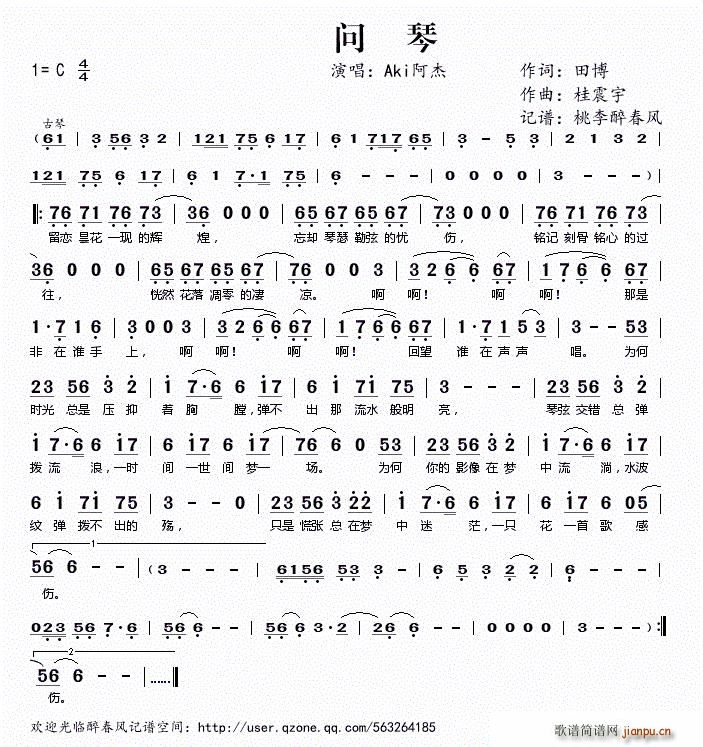 问 琴
1=C 4/4 演唱：Aki阿杰 作词：田博
作曲：桂震宇
古琴 记谱：桃李醉春风
( 61 | 3 56 3 2 | 121 75 6 17 | 6 1 717 65 | 3 - 5 3 | 2 1 3 2 |
121 75 6 17 | 6 1 7·1 75 | 6 - - - | 0 0 0 0 | 3 - - - ) |
‖: 76 71 76 73 | 36 0 0 0 | 65 67 65 67 | 73 0 0 0 | 76 71 76 73 |
留恋 昙花 一现 的辉 煌， 忘却 琴瑟 勒弦 的忧 伤， 铭记 刻骨 铭心 的过
36 0 0 0 | 65 67 65 67 | 76 0 0 3 | 3 26 6 67 | 1 76 6 67 |
往， 恍然 花落 凋零 的凄 凉。 啊 啊！ 啊 啊！ 那是
1·7 1 6 | 3 0 0 3 | 3 26 6 67 | 1 76 6 67 | 1·7 1 53 | 3 - - 53 |
非 在 谁 手 上， 啊 啊！ 啊 啊！ 回望 谁 在 声 声 唱。 为何
23 56 3 2 | 1 7·6 6 17 | 6 1 71 75 | 3 - - - | 23 56 3 2 |
时光 总是 压 抑 着 胸 膛，弹不 出 那 流水 般明 亮， 琴弦 交错 总 弹
1 7·6 6 17 | 6 17 6 17 | 76 6 0 53 | 23 56 3 2 | 1 7·6 6 17 |
拨 流 浪，一时 间 一世 间 梦一 场。 为何 你的 影像 在 梦 中 流 淌，水波
6 1 71 75 | 3 - - 0 | 23 56 3 22 | 1 7·6 6 17 | 6 17 6 05 |
纹 弹 拨不 出的 殇， 只是 慌张 总 在梦 中 迷 茫，一只 花 一首 歌 感
1
56 6 - - | (3 - - - | 6156 53 3 - | 6 5 3 2 2 | 6 - - - |
伤。
023 56 7·6 | 56 6 - - | 56 6 3·2 | 26 6 - - | 0 0 0 0 | 3 - - - ) :‖
2
56 6 - - |……‖
伤。
欢迎光临醉春风记谱空间：http://user.qzone.qq.com/563264185
歌谱简谱网 jianpu.cn